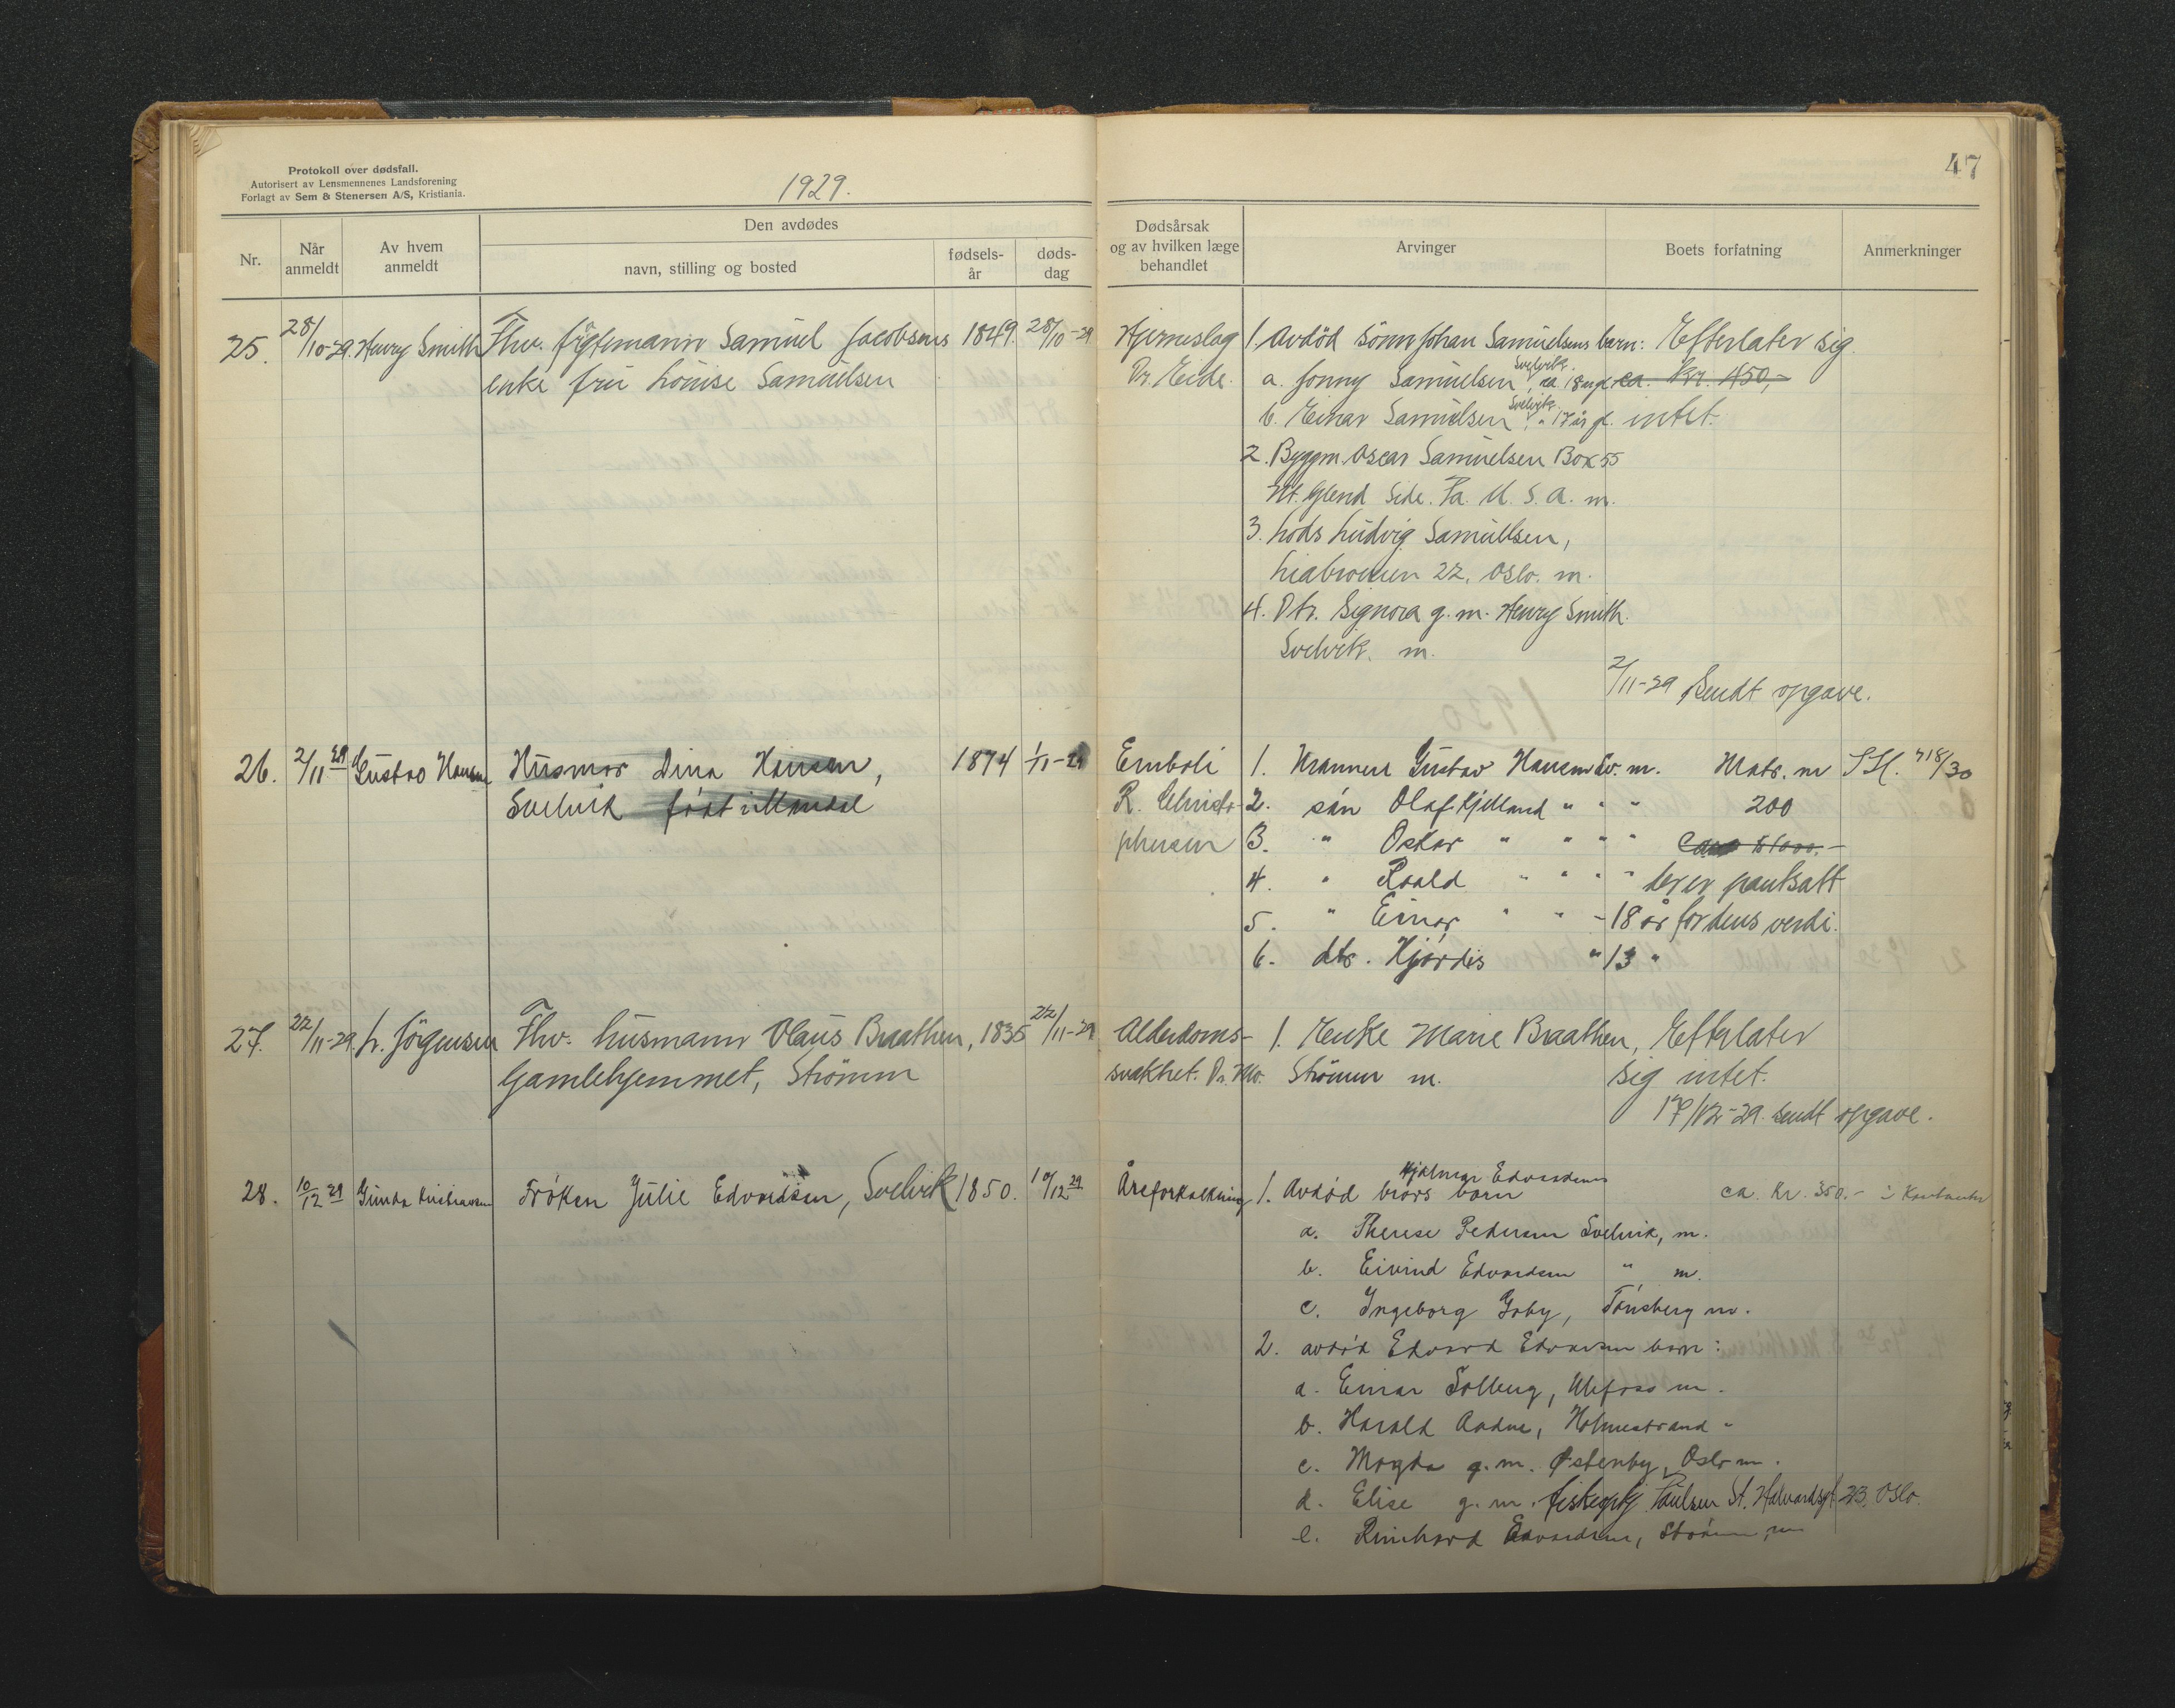 Protokoll over dødsfall.
Autorisert av Lensmennenes Landsforening
Forlagt av Sem & Stenersen A/S, Kristiania.
1929.
47
Nr.
Når anmeldt
Av hvem anmeldt
Den avdødes
navn, stilling og bosted
fødsels-år
døds-dag
Dødsårsak og av hvilken læge behandlet
Arvinger
Boets forfatning
Anmerkninger
25. 28/10-29. Henry Smith Fhv. Samuel Jacobsens 1849. 28/10-29
enke fru Louise Samuelsen
Hjerneslag
Dr. Eide.
1. Avdöd sönn Johan Samuelsens barn:
a. Jonny Samuelsen Svelvik, ca. 18 år gl.
b. Einar Samuelsen Svelvik, " 17 år gl.
2. Byggm. Oscar Samuelsen Box 55
Side. Pa. U.S.A. m.
3. Lods Ludvig Samuelsen,
22, Oslo. m.
4. Dtr. Signora g.m. Henry Smith.
Svelvik. m.
Efterlater sig.
ca. Kr. 450,-
intet.
2/11-29 Sendt opgave.
26. 2/11 29 Gustav Hansen Husmor Dina Hansen, 1874 1/11-29
Svelvik født i Mandal
Emboli
R. Christo-
phersen
1. Mannen Gustav Hansen Sv. m.
2. sön Olaf Kjelland " " "
3. " Oskar " " " "
4. " Roald " " " "
5. " Einar " " - 18 år
6. dtr. Hjördis " 13 "
Matr. nr
200
der er pantsatt
for dens verdi.
27. 22/11-29. L. Jörgensen Fhv. husmann Olaus Braathen, 1835 22/11-29
Gamlehjemmet, Strömm
Alderdoms-
svakhet. Dr. Mo.
1. Enke Marie Braathen,
Strömm m.
Efterlater
sig intet.
17/12-29 sendt opgave.
28. 10/12 29 Gunda Kristiansen Fröken Julie Edvardsen, Svelvik 1850. 10/12 29
Åreforkalkning
1. Avdöd brors Hjalmar Edvardsens barn
a. Therese Pedersen Svelvik, m.
b. Eivind Edvardsen " m.
c. Ingeborg Goby, Tönsberg m.
2. avdöd Edvard Edvardsen barn:
a. Einar Solberg, Ulefoss m.
b. Harald Aadne, Holmestrand "
c. Magda g.m. Østenby, Oslo m.
d. Elise g.m. Paulsen St. Halvardsgt. 23, Oslo.
e. Reinhard Edvardsen, Strömm, m
ca. Kr. 350.- i